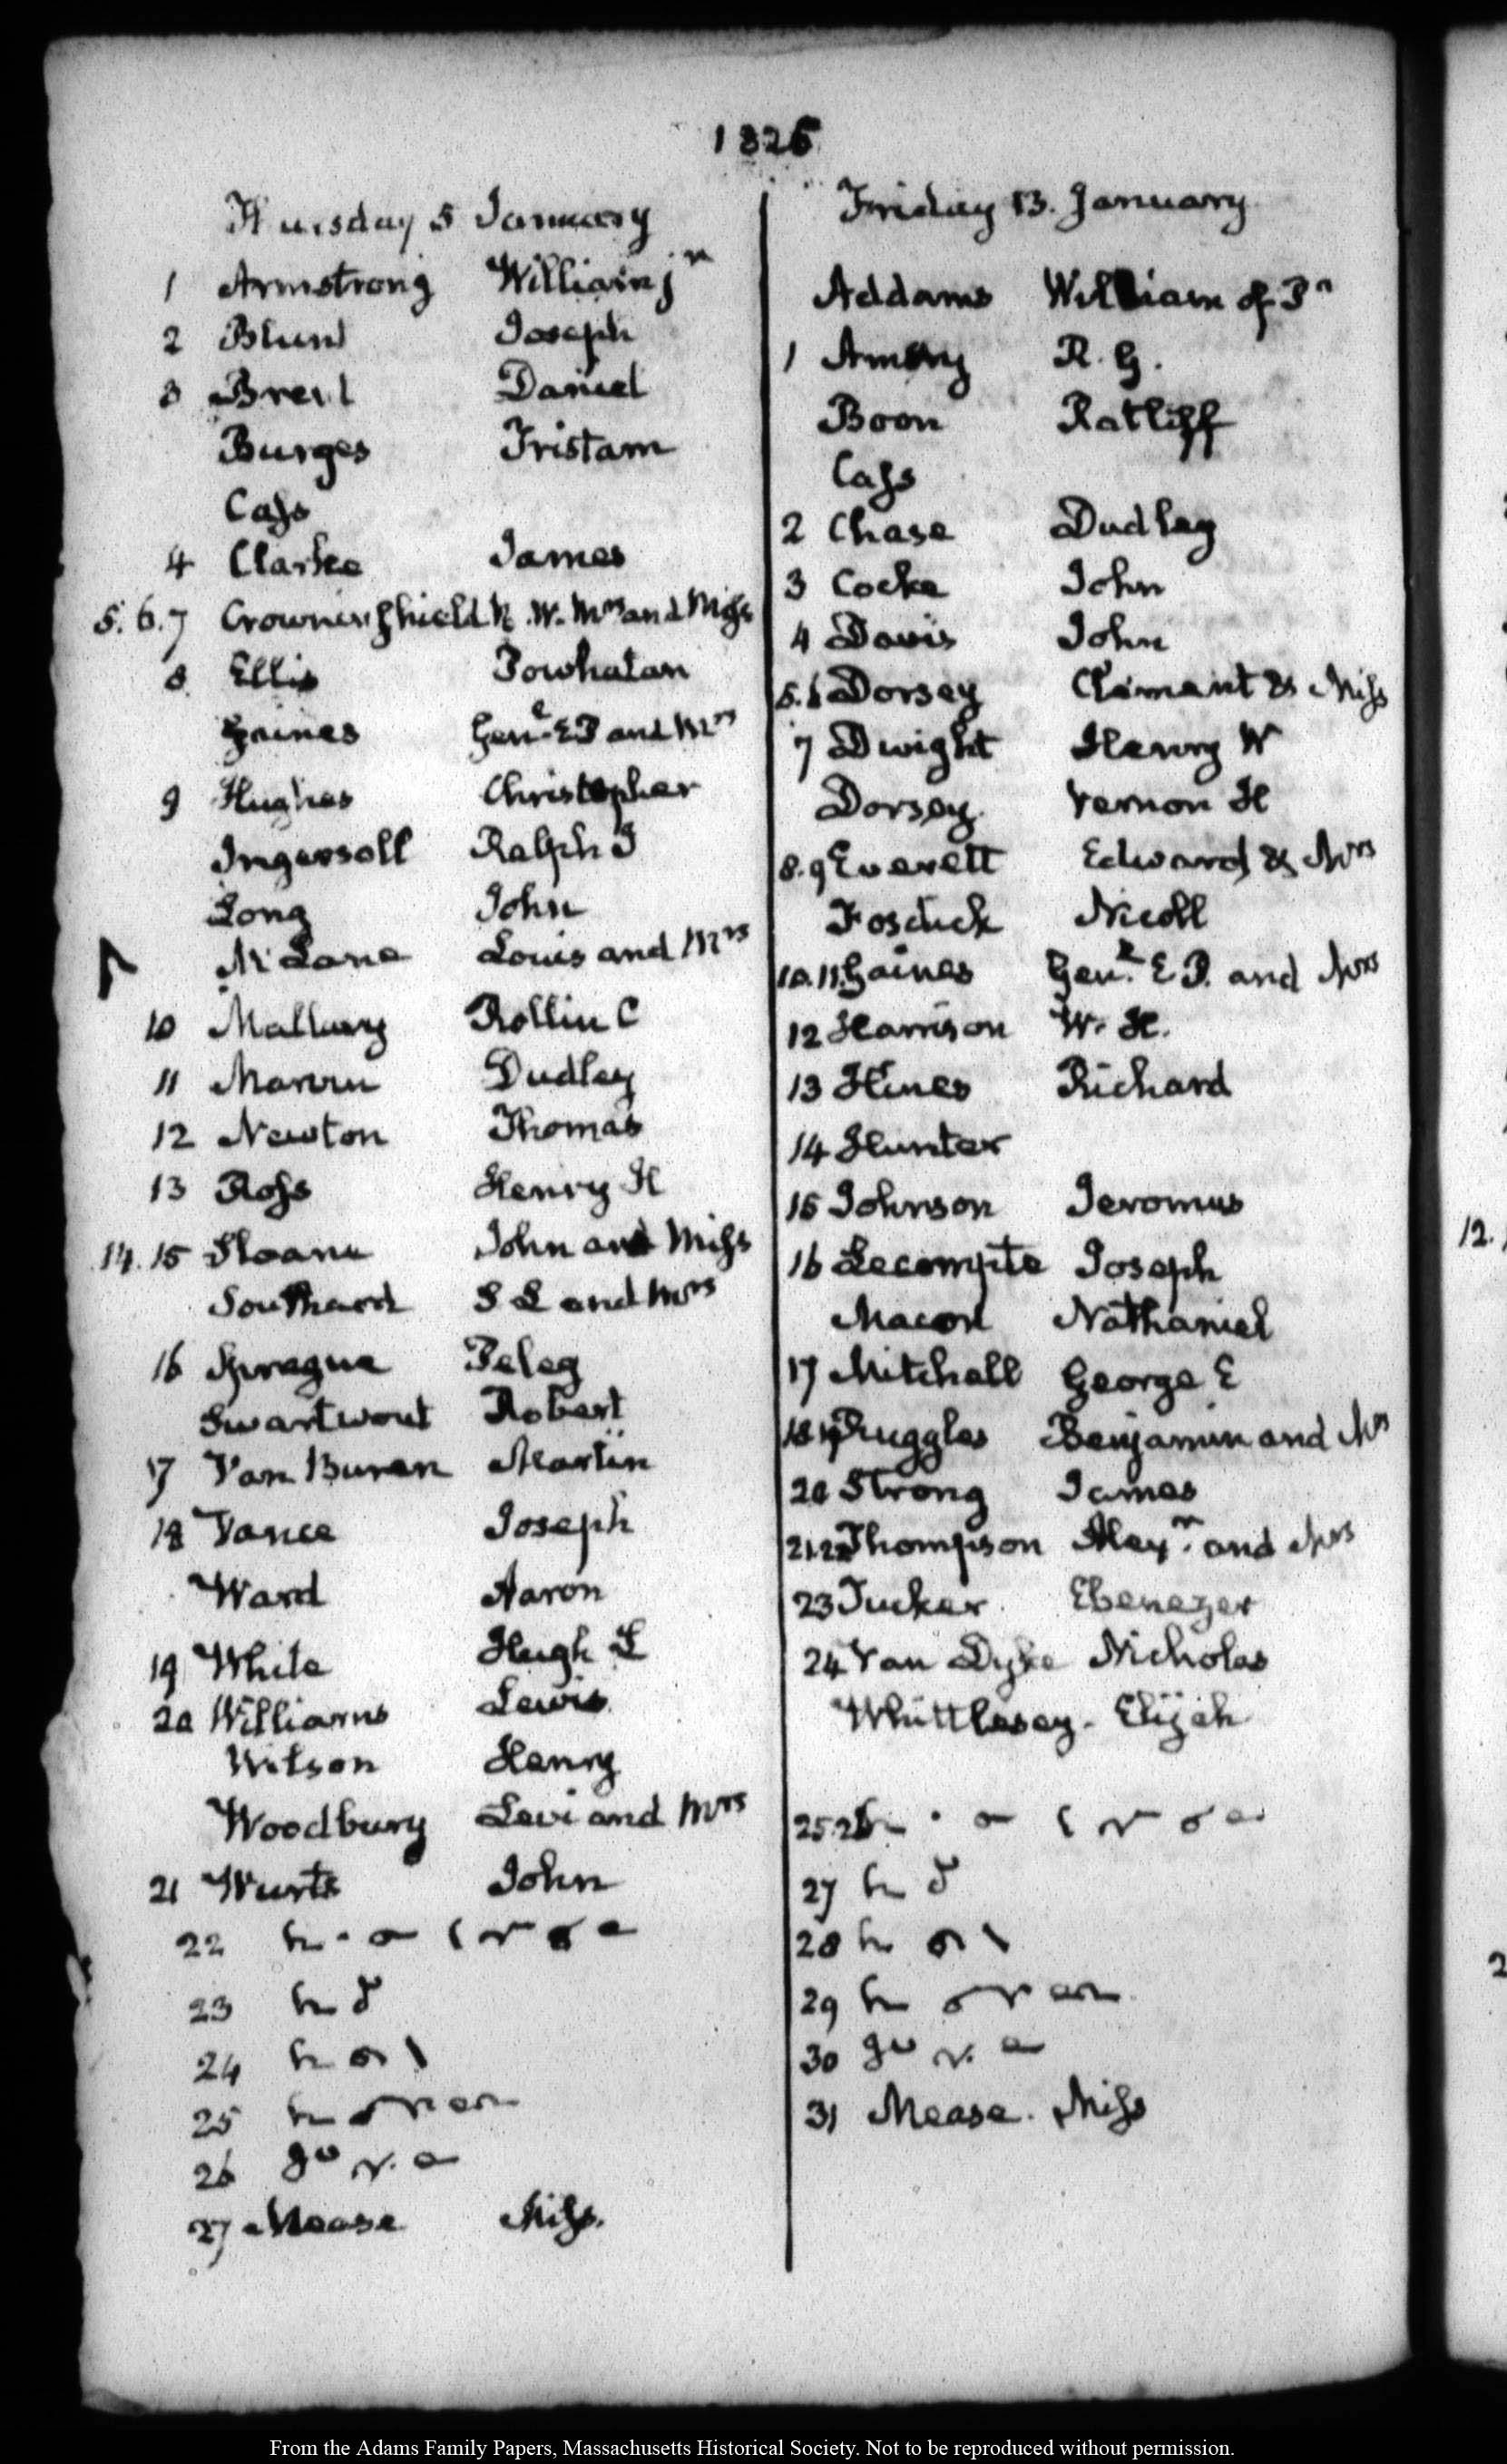 1826
Thursday 5 January
1 Armstrong William jn
2 Blunt Joseph
3 Brent Daniel
Burges Tristam
Cass
4 Clarke James
5. 6. 7 Crowninshield B. W. Mrs and Miss
8 Ellis Powhatan
Gaines Genl. E P and Mrs
9 Hughes Christopher
Ingersoll Ralph I
Long John
McLane Louis and Mrs
10 Mallary Rollin C
11 Marvin Dudley
12 Newton Thomas
13 Ross Henry H
14. 15 Sloane John and Miss
Southard S L and Mrs
16 Sprague Peleg
Swartwout Robert
17 Van Buren Martin
18 Vance Joseph
Ward Aaron
19 White Hugh L
20 Williams Lewis
Wilson Henry
Woodbury Levi and Mrs
21 Wurts John
22
23
24
25
26
27 Mease Miss.
Friday 13. January
Addams William of Pn
1 Amory R. G.
Boon Ratliff
Cass
2 Chase Dudley
3 Cocke John
4 Davis John
5. 6 Dorsey Clement & Miss
7 Dwight Henry W
Dorsey Vernon H
8. 9 Everett Edward & Mrs
Fosdick Nicoll
10. 11. Gaines Genl. E P. and Mrs
12 Harrison W. H.
13 Hines Richard
14 Hunter
15 Johnson Jeromus
16 Lecompte Joseph
Macon Nathaniel
17 Mitchell George E
18 19 Ruggles Benjamin and Mrs
20 Strong James
21. 22 Thompson Alexr. and Mrs
23 Tucker Ebenezer
24 Van Dyke Nicholas
Whittlesey - Elijah
25. 26
27
28
29
30
31 Mease. Miss
From the Adams Family Papers, Massachusetts Historical Society. Not to be reproduced without permission.